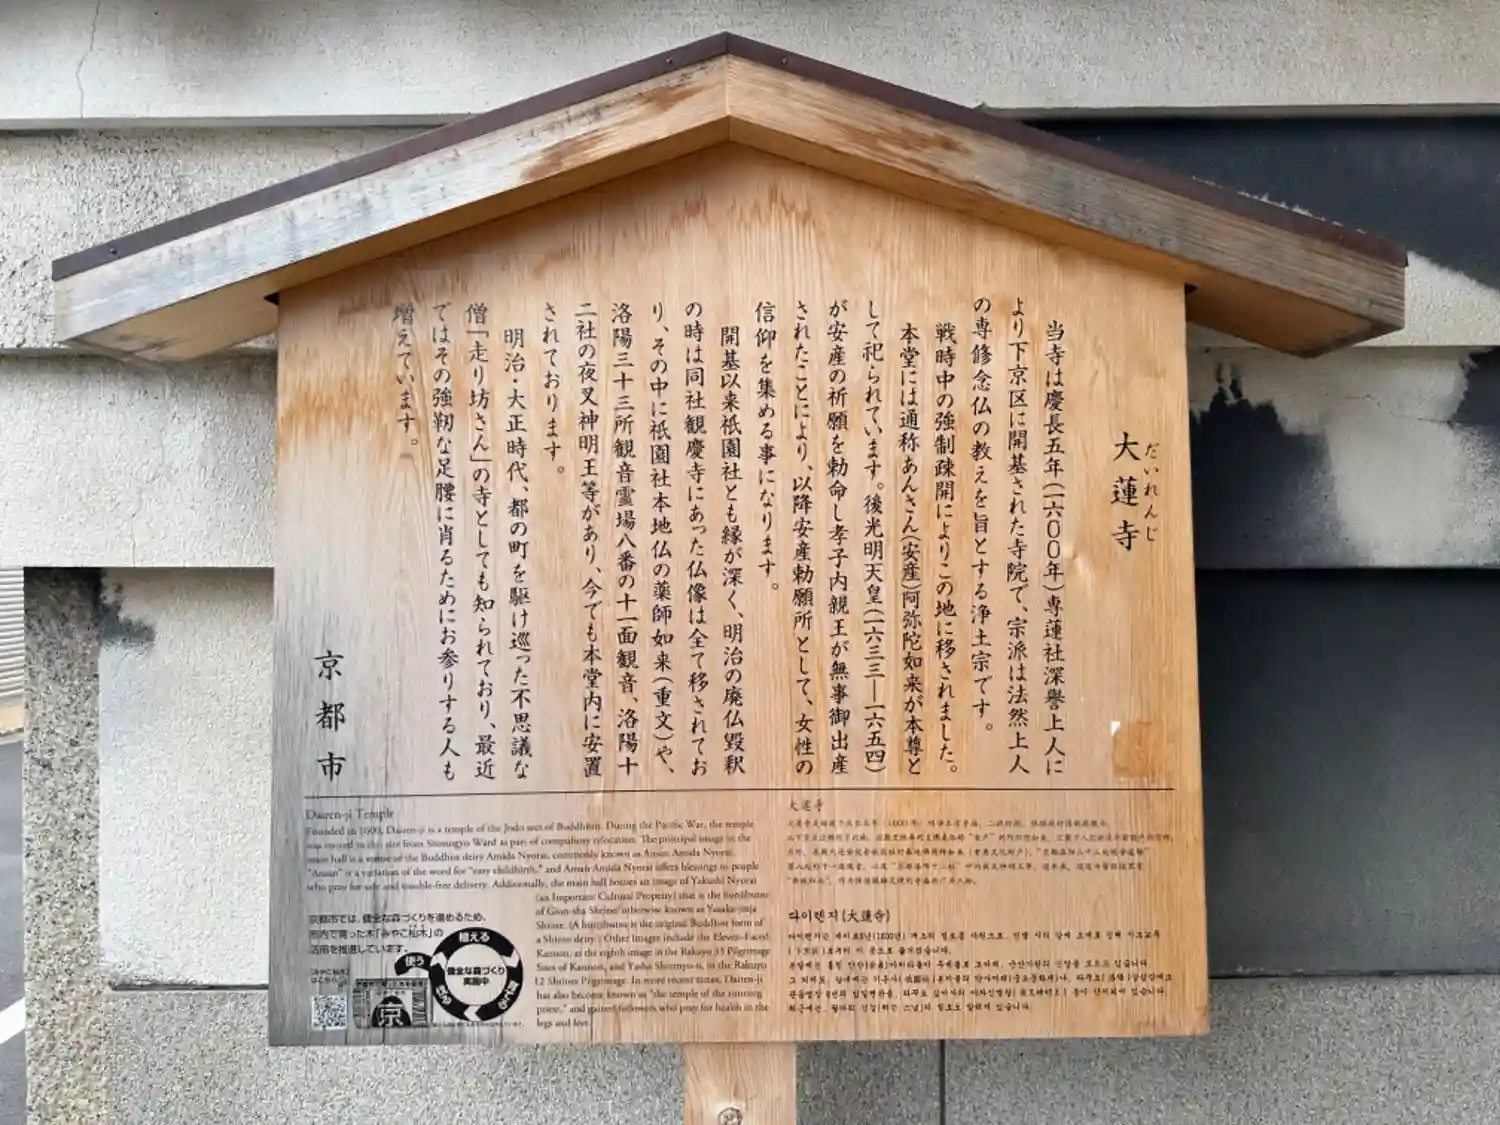 だいれんじ
大蓮寺
当寺は慶長五年(一六〇〇年)専蓮社深誉上人に
より下京区に開基された寺院で、宗派は法然上人
の専修念仏の教えを旨とする浄土宗です。
戦時中の強制疎開によりこの地に移されました。
本堂には通称あんさん(安産)阿弥陀如来が本尊と
して祀られています。後光明天皇(一六三三―一六五四)
が安産の祈願を勅命し孝子内親王が無事御出産
されたことにより、以降安産勅願所として、女性の
信仰を集める事になります。
開基以来祇園社とも縁が深く、明治の廃仏毀釈
の時は同社観慶寺にあった仏像は全て移されてお
り、その中に祇園社本地仏の薬師如来(重文)や、
洛陽三十三所観音霊場八番の十一面観音、洛陽十
二社の夜叉神明王等があり、今でも本堂内に安置
されております。
明治・大正時代、都の町を駆け巡った不思議な
僧「走り坊さん」の寺としても知られており、最近
ではその強靭な足腰に肖るためにお参りする人も
増えています。
京都市
Dairen-ji Temple
Founded in 1600, Dairen-ji is a temple of the Jodo sect of Buddhism. During the Pacific War, the temple
was moved to this site from Shimogyo Ward as part of compulsory relocation. The principal image in the
main hall is a statue of the Buddhist deity Amida Nyorai, commonly known as Ansan Amida Nyorai.
"Ansan" is a variation of the word for "easy childbirth," and Ansan Amida Nyorai offers blessings to people
who pray for safe and trouble-free delivery. Additionally, the main hall houses an image of Yakushi Nyorai
(an Important Cultural Property) that is the honjibutsu
of Gion-sha Shrine/otherwise known as Yasaka-jinja
Shrine. (A honjibutsu is the original Buddhist form of
a Shinto deity.) Other images include the Eleven-Faced
Kannon, at the eighth image in the Rakuyo 33 Pilgrimage
Sites of Kannon, and Yasha Shinmyo-o, in the Rakuyo
12 Shrines Pilgrimage. In more recent times, Dairen-ji
has also become known as "the temple of the running
priest," and gained followers who pray for health in the
legs and feet.
京都市では、健全な森づくりを進めるため、
市内で育った木「みやこ杣木」の
活用を推進しています。
植える
使う
健全な森づくり
実施中
京
大莲寺
다이렌지 (大蓮寺)